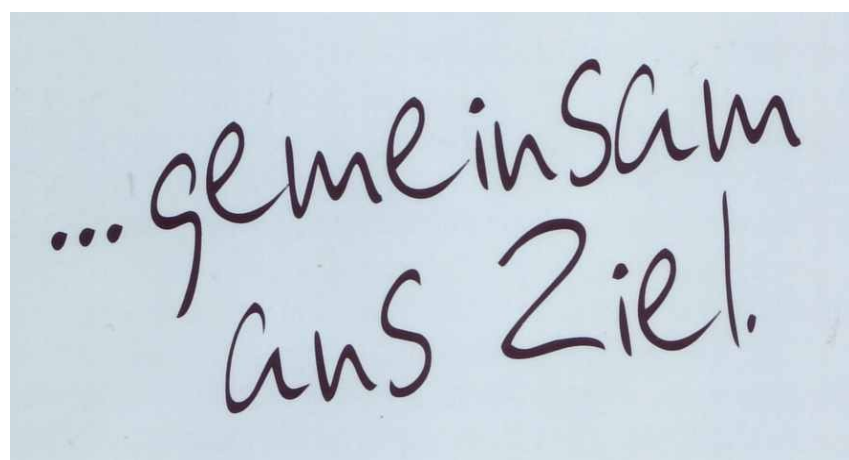 ...gemeinsam
ans Ziel.